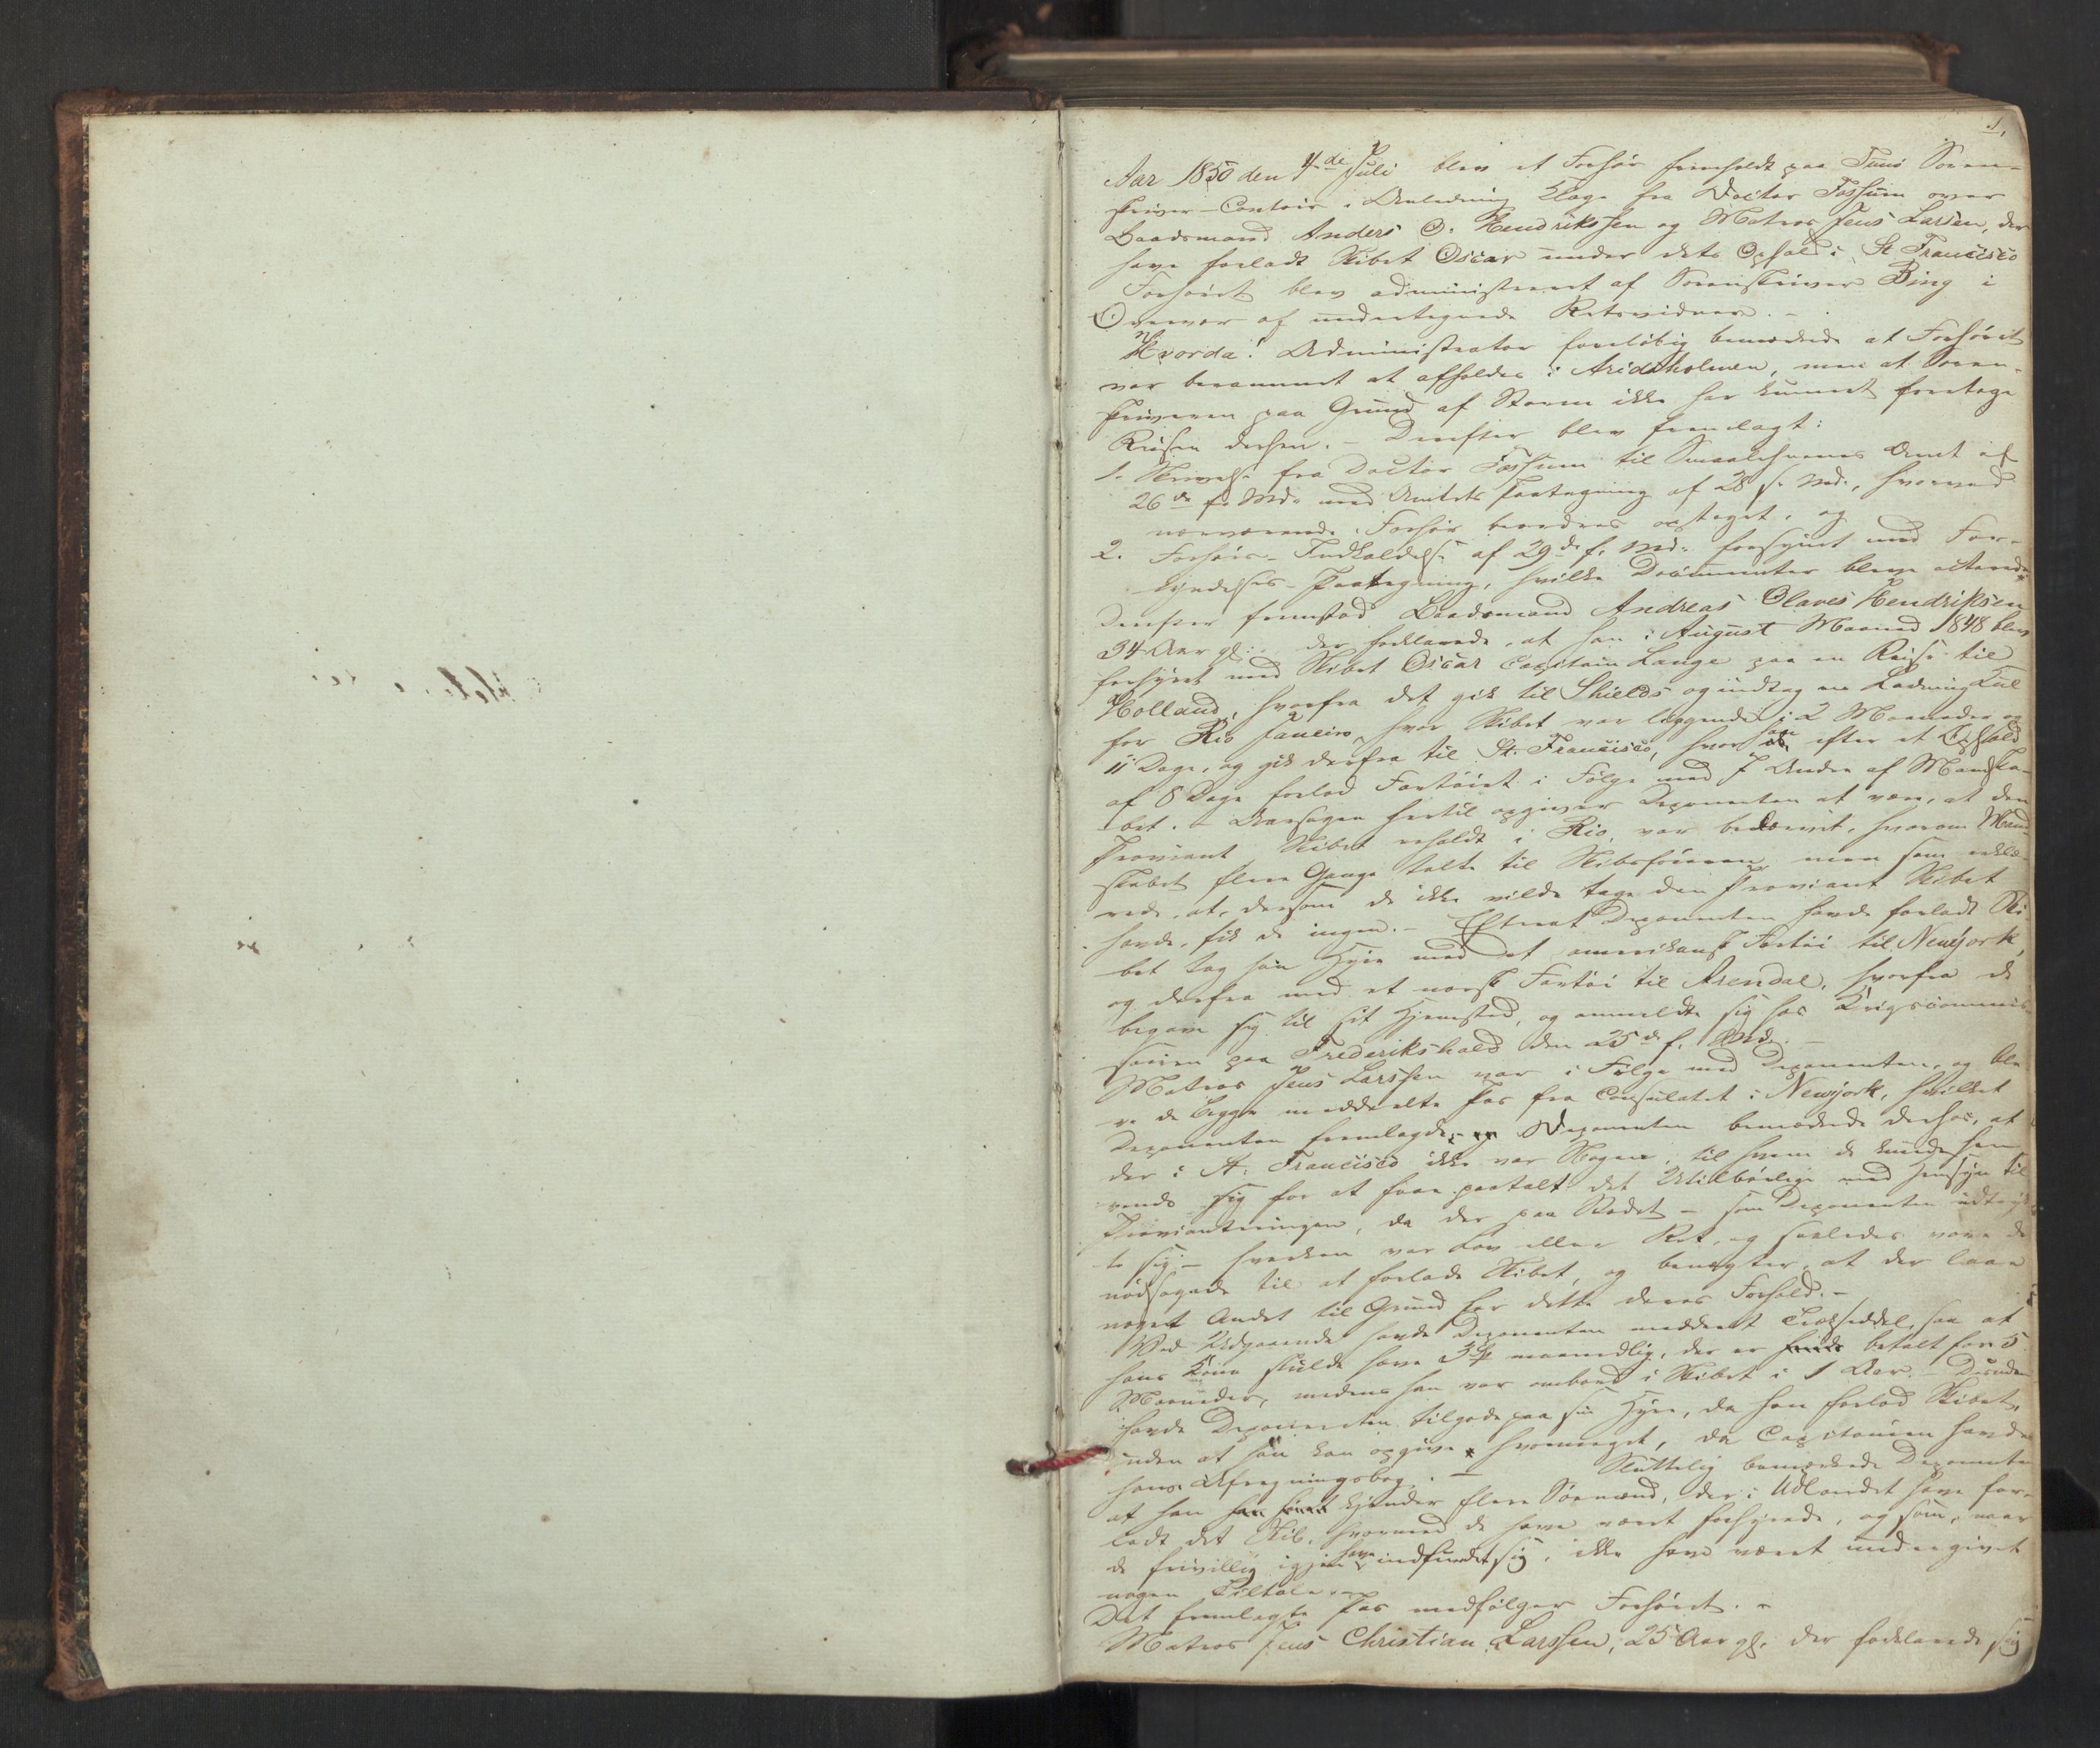 1,
Aar 1850 den 4de Juli blev et Forhør fremholdt paa Tunø Soren-
skriver-Contoir i Anledning Klage fra Doctor Fossum over
Baadsmand Anders O. Hendrikssen og Matros Jens Larsen, der
have forladt Skibet Oscar under dets Ophold i St Francisco
Forhøret blev administreret af Sorenskriver Bing i
Overvær af undertegnede Retsvidner. –
Hvorda! Administrator foreløbig bemærkede at Forhøret
var berammet at afholdes i Aridsholmen, men at Soren-
skriveren paa Grund af Storm ikke har kunnet foretage
Reisen derhen. – Derefter blev fremlagt:
1. Skrivelse fra Doctor Fossum til Smaalehnenes Amt af
26de f. Md. med Amtets Paategning af 28 s. Md., hvorved
nærværende Forhør beordres optaget, og
2. Forhørs-Indkaldelse af 29de f. Md. forsynet med For-
kyndelses-Paategning, hvilke Documenter bleve acterede
Derefter fremstod Baadsmand Andreas Olaves Hendriksen
34 Aar gl: der forklarede, at han i August Maaned 1848 blev
forhyret med Skibet Oscar Capitain Lange paa en Reise til
Holland, hvorfra det gik til Shields og indtog en Ladning Kul
for Rio Janeiro, hvor Skibet var liggende i 2 Maaneder og
11 Dage, og gik derfra til St. Francisco, hvor han efter et Ophold
af 8 Dage forlod Fartøiet i Følge med 7 Andre af Mandska-
bet. – Aarsagen hertil opgiver Deponenten at være, at den
Proviant Skibet erholdt i Rio, var bedærvet, hvorom Mand-
skabet flere Gange talte til Skibsføreren, men som erklæ-
rede, at, dersom de ikke vilde tage den Proviant Skibet
havde, fik de ingen. – Efterat Deponenten havde forladt Ski-
bet tog han Hyre med et amerikansk Fartøi til Newyork,
og derfra med et norsk Fartøi til Arendal, hvorfra de
begave sig til sit Hjemsted, og anmeldte sig hos Krigscommis-
sairen paa Frederikshald den 25de f. Md. –
Matros Jens Larssen var i Følge med Deponenten, og ble-
ve de begge meddeelte Pas fra Consulatet i Newyork, hvilket
Deponenten fremlagde. – Deponenten bemærkede derhos, at
der i St. Francisco ikke var Nogen, til hvem de kunde hen-
vende sig for at faae paatalt det Utilbørlige med Hensyn til
Provianteringen, da der paa Stedet – som Deponenten udtryk-
te sig – hverken var Lov eller Ret, og saaledes vare de
nødsagede til at forlade Skibet, og benegter, at der laae
noget Andet til Grund for dette deres Forhold. –
Ved Udgaaende havde Deponenten meddeelt Trækseddel, saa at
hans Kone skulde have 3 Sp maanedlig, der er betalt for 5
Maaneder, medens han var ombord i Skibet i 1 Aar. – Desuden
havde Deponenten tilgode paa sin Hyre, da han forlod Skibet,
uden at han kan opgive hvormeget, da Capitainen havde
hans Afregningsbog. – Sluttelig bemærkede Deponenten
at han kjender flere Sømænd, der i Udlandet have for-
ladt det Skib, hvormed de have været forhyrede, og som, naar
de frivillig igjen have indfundet sig, ikke have været undergivet
nogen Tiltale. –
Det fremlagte Pas medfølger Forhøret. –
Matros Jens Christian Larssen, 25 Aar gl. der forklarede sig